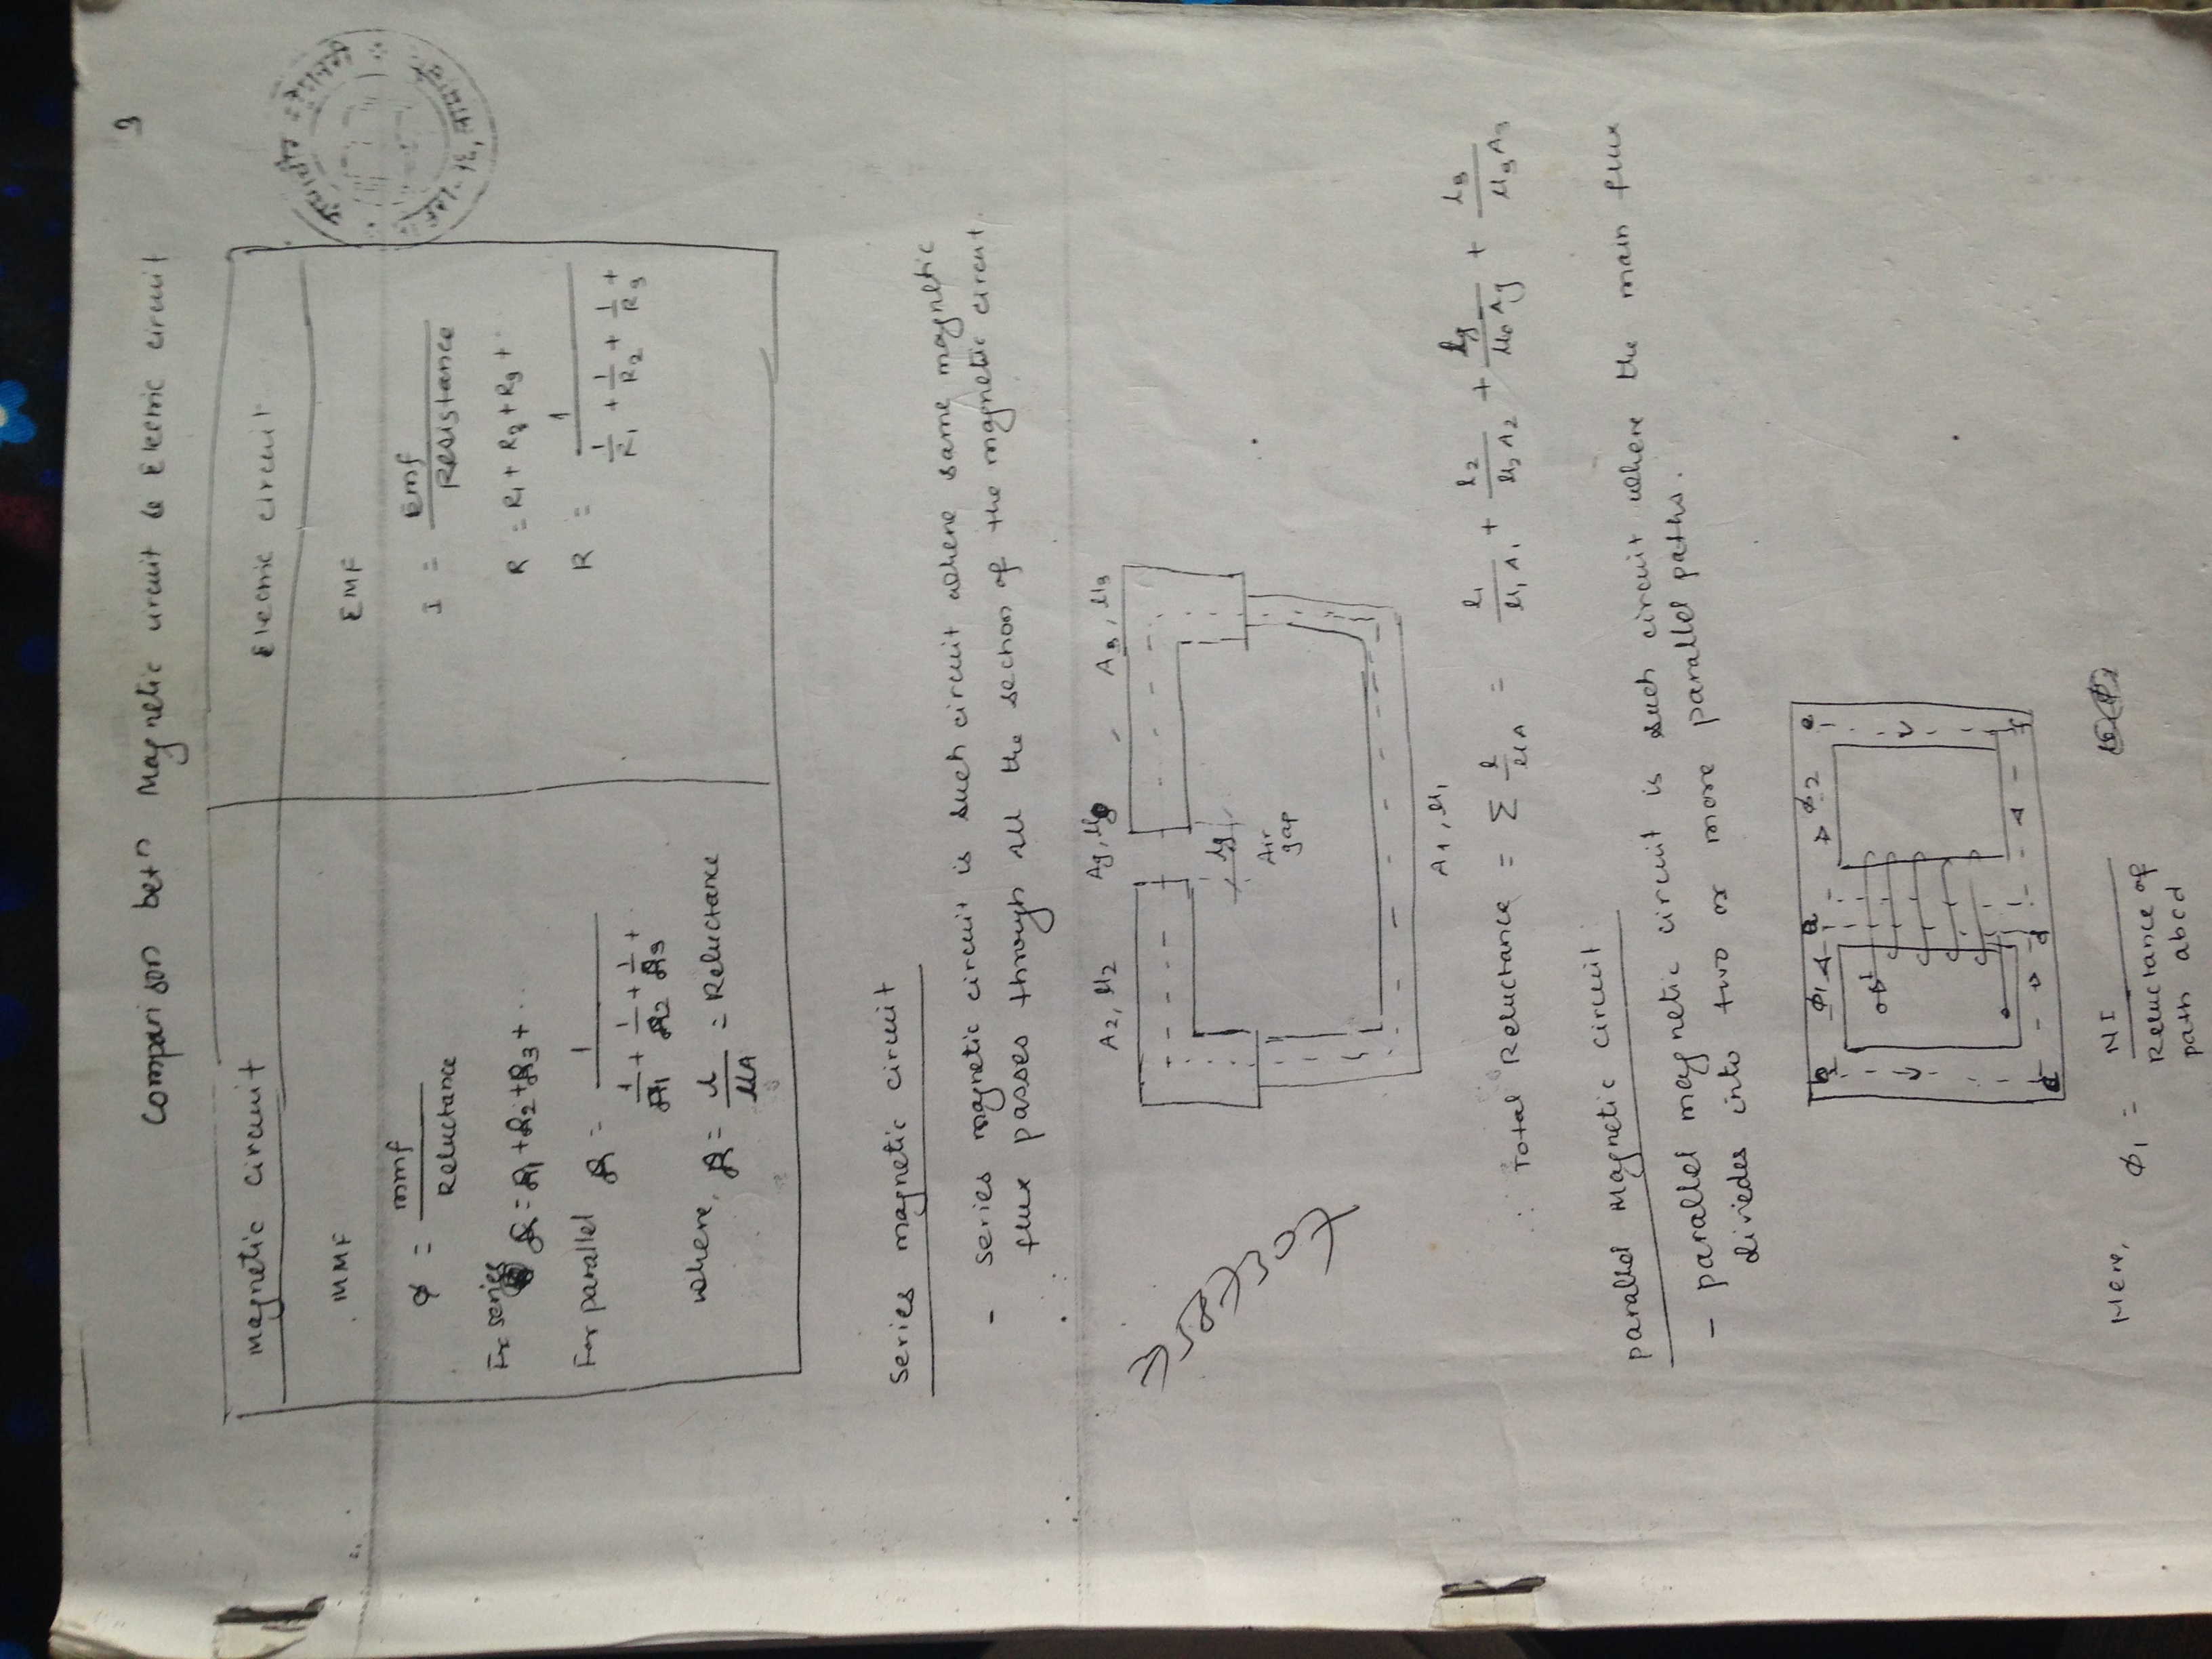 3
Comparison betn Magnetic circuit & Electric circuit
Magnetic circuit
Electric circuit
MMF
EMF
φ = mmf / Reluctance
I = Emf / Resistance
For series
ℛ = ℛ1 + ℛ2 + ℛ3 + ..
R = R1 + R2 + R3 +
For parallel ℛ = 1 / (1/ℛ1 + 1/ℛ2 + 1/ℛ3 + .
R = 1 / (1/R1 + 1/R2 + 1/R3 +
where, ℛ = l/μA = Reluctance
Series magnetic circuit
- Series magnetic circuit is such circuit where same magnetic
flux passes through all the section of the magnetic circuit.
A2, μ2
Ag, μ0
A3, μ3
lg
Air
gap
A1, μ1
∴ Total Reluctance = Σ l/μA = l1/μ1A1 + l2/μ2A2 + lg/μ0Ag + l3/μ3A3
parallel Magnetic circuit:
- parallel magnetic circuit is such circuit where the main flux
diviedes into two or more parallel paths.
b φ1 a φ2 e
d f
Here, φ1 = NI / Reluctance of
path abcd